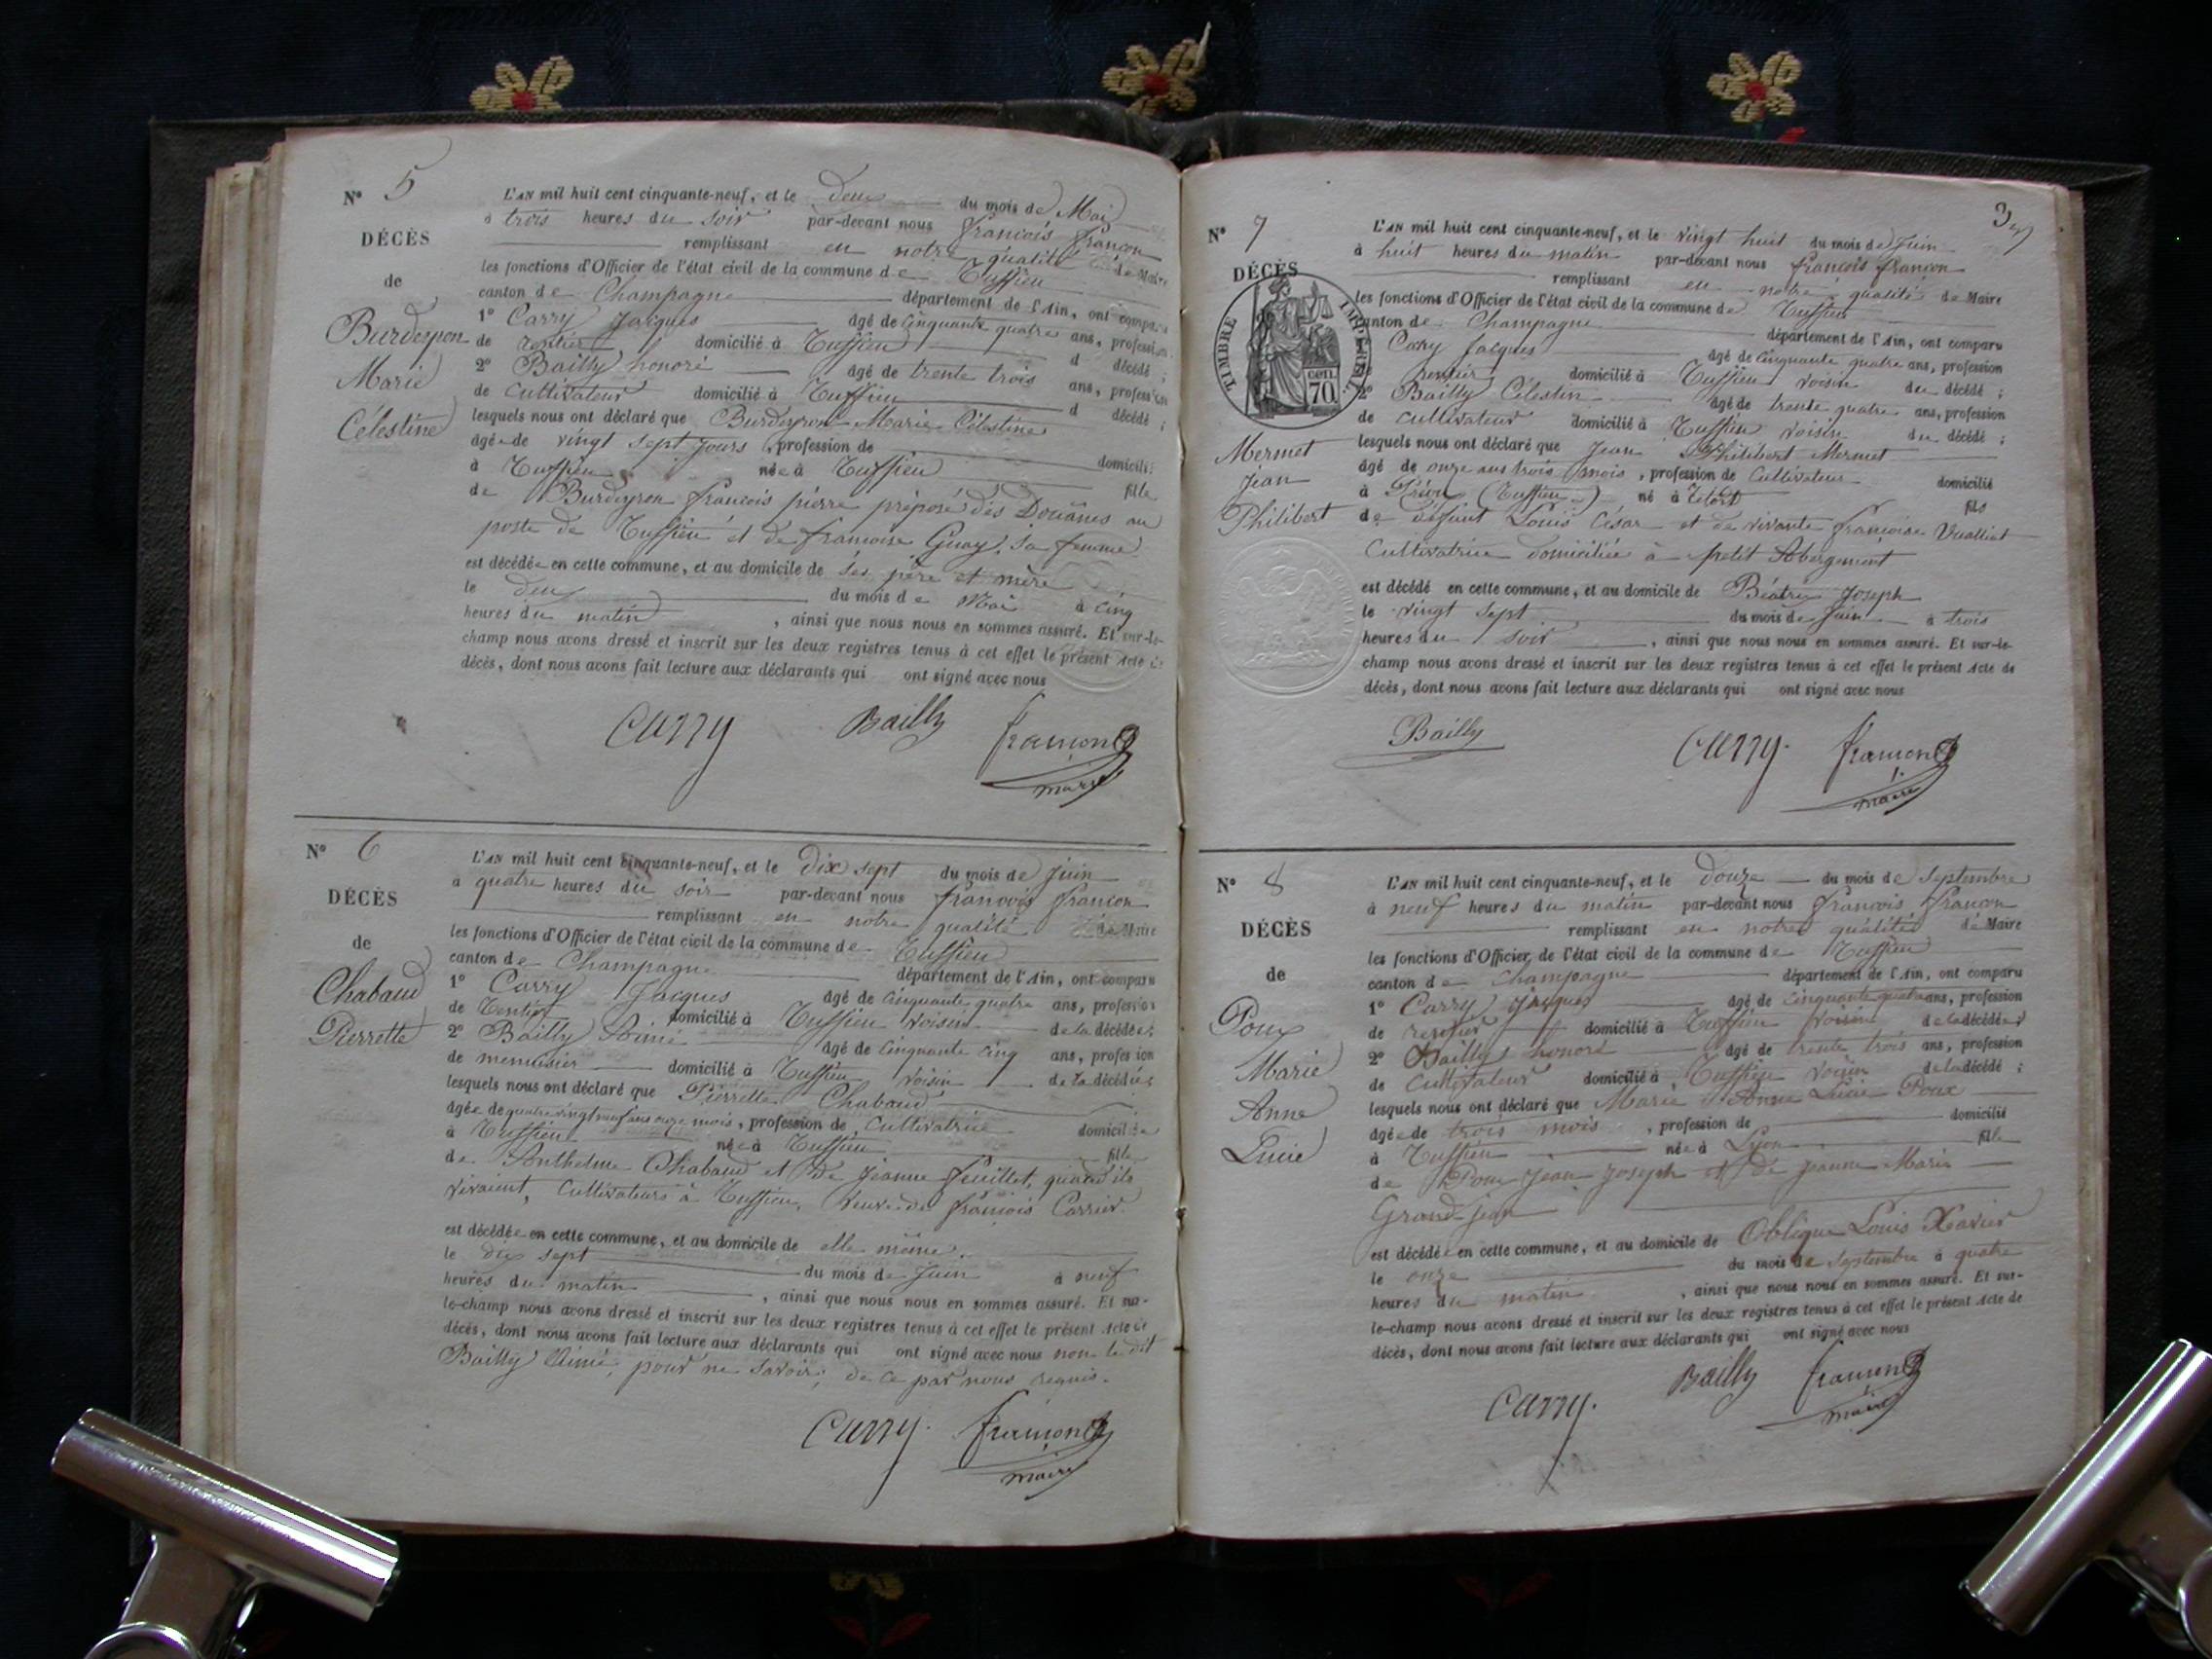 N° 5
DÉCÈS
de
Burdeyron
Marie
Célestine
L'AN mil huit cent cinquante-neuf, et le deux du mois de Mai
à trois heures du soir par-devant nous francois francon
remplissant en notre qualité de Maire
les fonctions d'Officier de l'état civil de la commune de Tuffieu
canton de Champagne département de l'Ain, ont comparu
1° Carry Jacques âgé de cinquante quatre ans, profession
de rentier domicilié à Tuffieu d décédé ;
2° Bailly honoré âgé de trente trois ans, profession
de cultivateur domicilié à Tuffieu d décédé ;
lesquels nous ont déclaré que Burdeyron Marie Célestine
âgée de vingt sept jours, profession de domicilié
à Tuffieu née à Tuffieu fille
de Burdeyron francois pierre préposé des Douanes au
poste de Tuffieu et de francoise Guay, sa femme
est décédée en cette commune, et au domicile de ses père et mère
le deux du mois de Mai à cinq
heures du matin, ainsi que nous nous en sommes assuré. Et sur-le-
champ nous avons dressé et inscrit sur les deux registres tenus à cet effet le présent Acte de
décès, dont nous avons fait lecture aux déclarants qui ont signé avec nous
Carry Bailly francon
maire
N° 6
DÉCÈS
de
Chabaud
Pierrette
L'AN mil huit cent cinquante-neuf, et le dix sept du mois de juin
à quatre heures du soir par-devant nous francois francon
remplissant en notre qualité de Maire
les fonctions d'Officier de l'état civil de la commune de Tuffieu
canton de Champagne département de l'Ain, ont comparu
1° Carry Jacques âgé de cinquante quatre ans, profession
de rentier domicilié à Tuffieu voisin de la décédée ;
2° Bailly Aimé âgé de cinquante cinq ans, profession
de menuisier domicilié à Tuffieu voisin de la décédée ;
lesquels nous ont déclaré que Pierrette Chabaud
âgée de quatre vingt neuf ans onze mois, profession de cultivatrice domiciliée
à Tuffieu née à Tuffieu fille
de Anthelme Chabaud et de jeanne feuillet, quand ils
vivaient, cultivateurs à Tuffieu, veuve de francois Carrier
est décédée en cette commune, et au domicile de elle même.
le dix sept du mois de Juin à neuf
heures du matin, ainsi que nous nous en sommes assuré. Et sur-
le-champ nous avons dressé et inscrit sur les deux registres tenus à cet effet le présent Acte de
décès, dont nous avons fait lecture aux déclarants qui ont signé avec nous non le dit
Bailly Aimé, pour ne savoir, de ce par nous requis.
Carry. francon
maire
3
N° 7
DÉCÈS
TIMBRE IMPÉRIAL
cen. 70
Mermet
Jean
Philibert
L'AN mil huit cent cinquante-neuf, et le vingt huit du mois de Juin
à huit heures du matin par-devant nous francois francon
remplissant en notre qualité de Maire
les fonctions d'Officier de l'état civil de la commune de Tuffieu
canton de Champagne département de l'Ain, ont comparu
Carry Jacques âgé de cinquante quatre ans, profession
rentier domicilié à Tuffieu voisin du décédé ;
2° Bailly Célestin âgé de trente quatre ans, profession
de cultivateur domicilié à Tuffieu voisin du décédé ;
lesquels nous ont déclaré que Jean Philibert Mermet
âgé de onze ans trois mois, profession de Cultivateur domicilié
à (Tuffieu) né à fils
de défunt Louis César et de vivante francoise Vuaillat
Cultivatrice domiciliée à petit Abergement
est décédé en cette commune, et au domicile de Béatrix Joseph
le vingt sept du mois de Juin à trois
heures du soir, ainsi que nous nous en sommes assuré. Et sur-le-
champ nous avons dressé et inscrit sur les deux registres tenus à cet effet le présent Acte de
décès, dont nous avons fait lecture aux déclarants qui ont signé avec nous
Bailly Carry. francon
maire
N° 8
DÉCÈS
de
Poux
Marie
Anne
Lucie
L'AN mil huit cent cinquante-neuf, et le douze du mois de septembre
à neuf heures du matin par-devant nous francois francon
remplissant en notre qualité de Maire
les fonctions d'Officier de l'état civil de la commune de Tuffieu
canton de Champagne département de l'Ain, ont comparu
1° Carry Jacques âgé de cinquante quatre ans, profession
de rentier domicilié à Tuffieu voisin de la décédée ;
2° Bailly honoré âgé de trente trois ans, profession
de cultivateur domicilié à Tuffieu voisin de la décédé ;
lesquels nous ont déclaré que Marie Anne Lucie Poux
âgée de trois mois, profession de domicilié
à Tuffieu née à Lyon fille
de Poux Jean Joseph et de jeanne Marie
Grand-jean
est décédée en cette commune, et au domicile de Oblique Louis Xavier
le onze du mois de septembre à quatre
heures du matin, ainsi que nous nous en sommes assuré. Et sur-
le-champ nous avons dressé et inscrit sur les deux registres tenus à cet effet le présent Acte de
décès, dont nous avons fait lecture aux déclarants qui ont signé avec nous
Carry. Bailly francon
maire